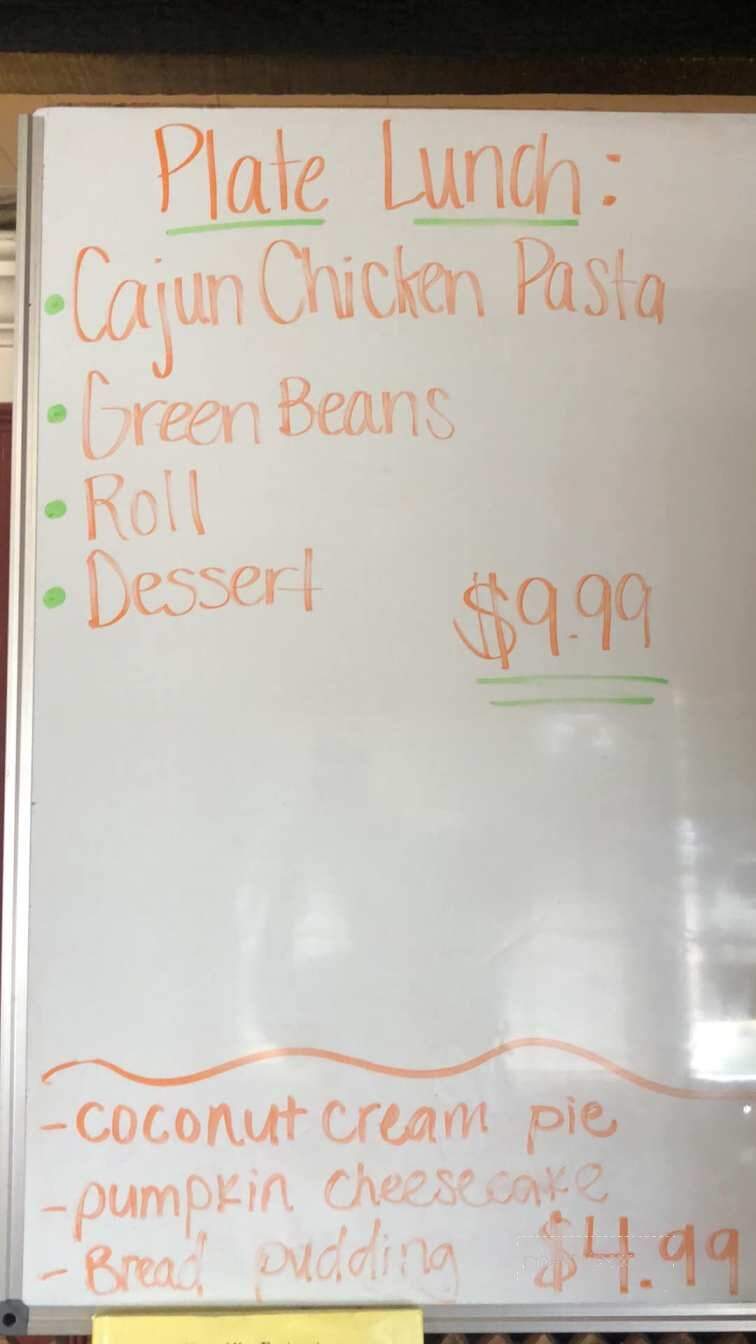 Plate Lunch:
• Cajun Chicken Pasta
• Green Beans
• Roll
• Dessert $9.99
- coconut cream pie
- pumpkin cheesecake
- Bread pudding $4.99